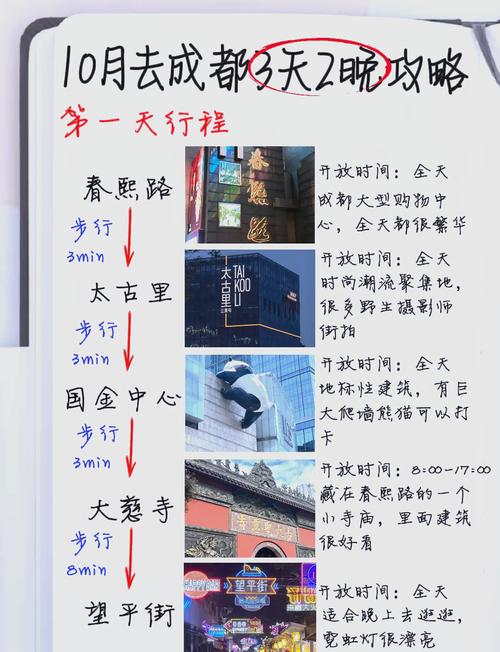 10月去成都3天2晚攻略
第一天行程
春熙路
春熙路
开放时间：全天
成都大型购物中
心，全天都很繁华
步行
3min
太古里
太古里
TAI
KOO
LI
开放时间：全天
时尚潮流聚集地，
很多野生摄影师
街拍
步行
3min
国金中心
开放时间：全天
地标性建筑，有巨
大爬墙熊猫可以打
卡
步行
3min
大慈寺
开放时间：8:00-17:00
藏在春熙路的一个
小寺庙，里面建筑
很好看
步行
8min
望平街
HAPPY BAR
望平街
开放时间：全天
适合晚上去逛逛，
霓虹灯很漂亮